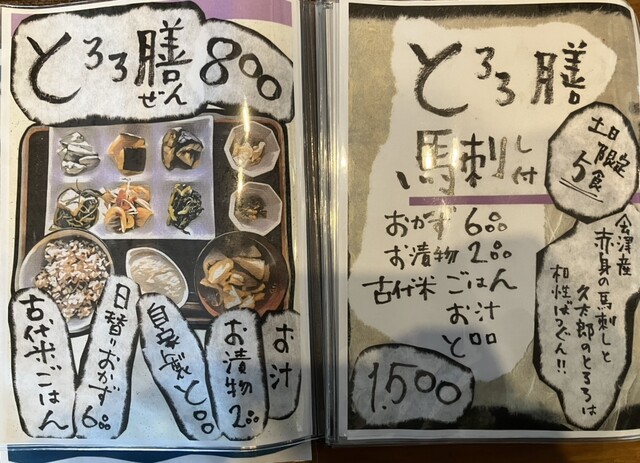 とろろ膳 800
ぜん
お汁
お漬物 2品
自家製とろろ
日替りおかず 6品
古代米ごはん
とろろ膳
馬刺し付
土日限定
5食
おかず 6品
お漬物 2品
古代米ごはん
お汁
とろろ
1.500
会津産
赤身の馬刺しと
久太郎のとろろは
相性ばつぐん!!